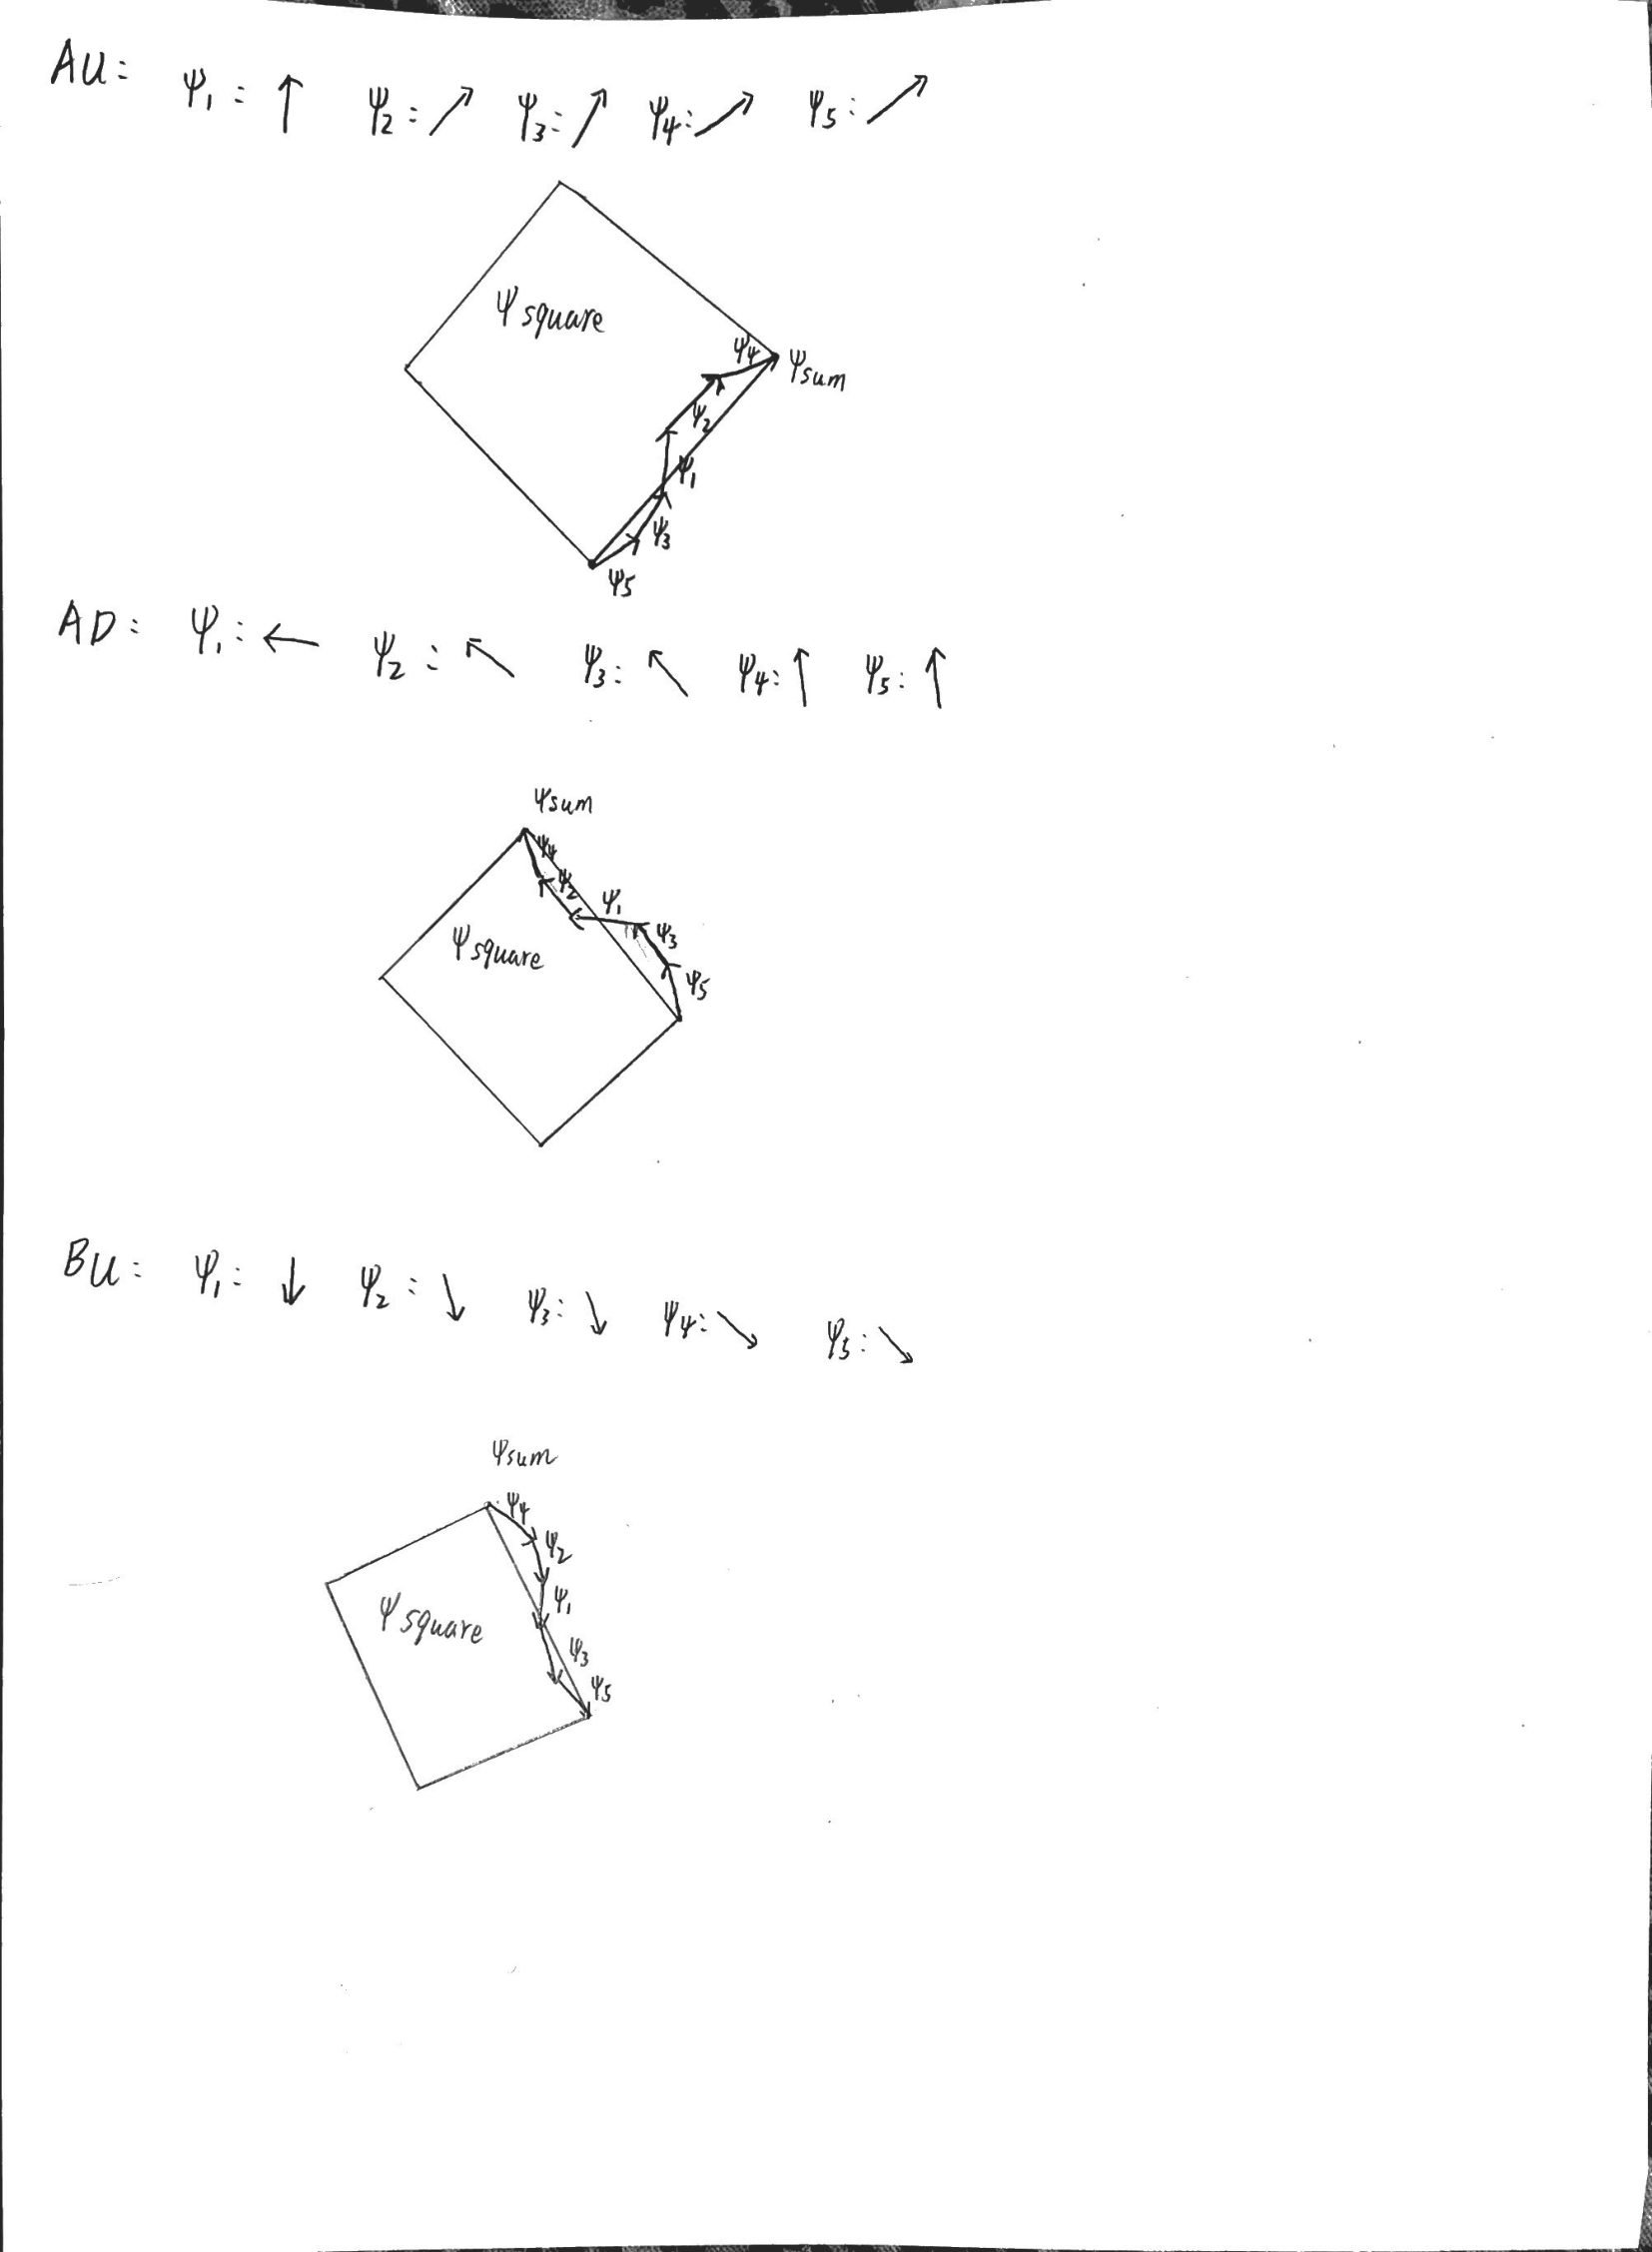 AU: ψ₁: ↑ ψ₂: ↗ ψ₃: ↗ ψ₄: ↗ ψ₅: ↗
ψ square
ψ₄
ψsum
ψ₂
ψ₁
ψ₃
ψ₅
AD: ψ₁: ← ψ₂: ↖ ψ₃: ↖ ψ₄: ↑ ψ₅: ↑
ψsum
ψ₄
ψ₂
ψ₁
ψ₃
ψ square
ψ₅
BU: ψ₁: ↓ ψ₂: ↘ ψ₃: ↘ ψ₄: ↘ ψ₅: ↘
ψsum
ψ₄
ψ₂
ψ₁
ψ square
ψ₃
ψ₅